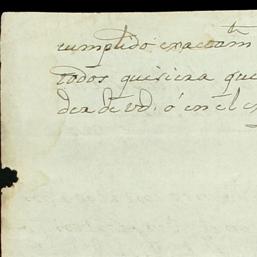 cumplido exactam.te
todos quisiera que
der de Vd. ó en el